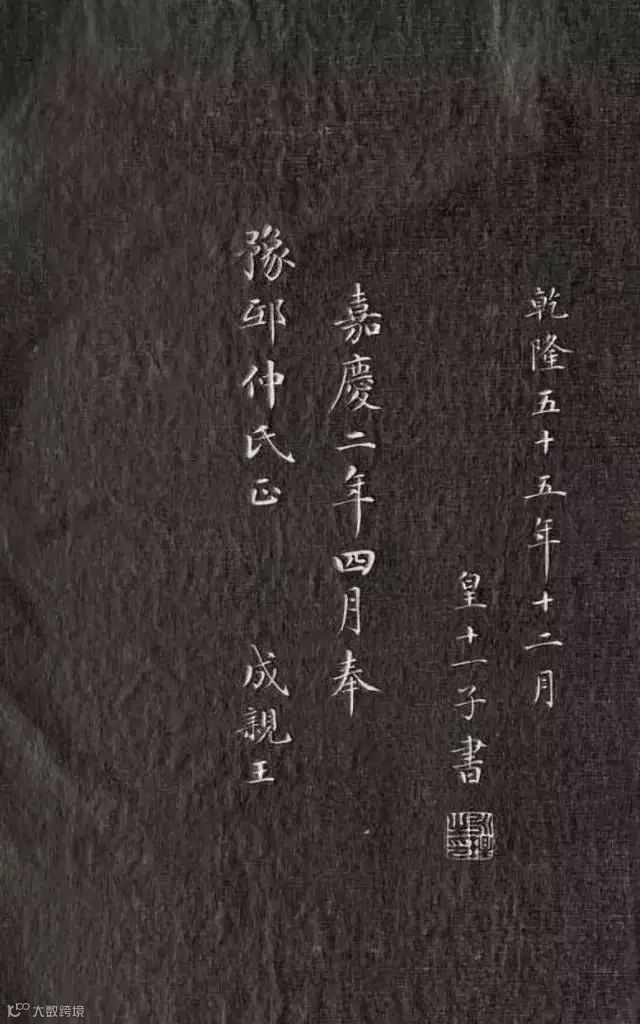 乾隆五十五年十二月
皇十一子書
嘉慶二年四月奉
豫邸仲氏正
成親王
大数跨境